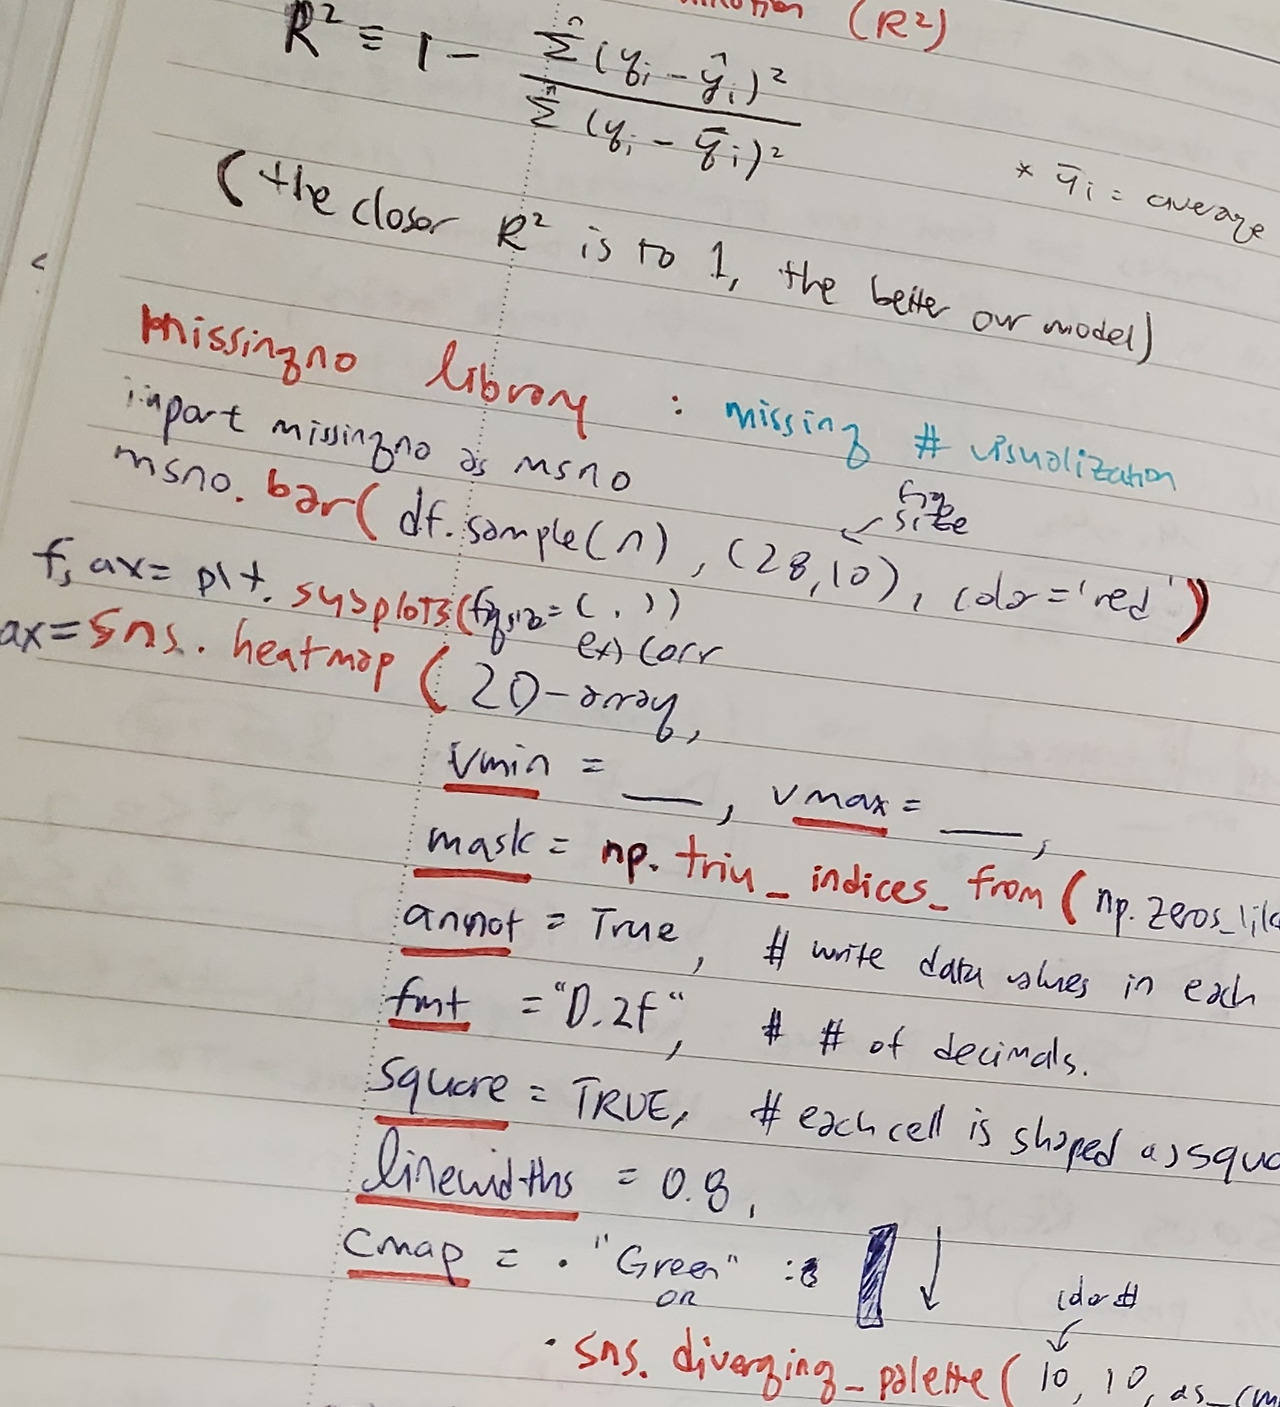 (R²)
R² ≡ 1 - Σⁿ (yᵢ - ŷᵢ)² / Σⁿ (yᵢ - ȳᵢ)²
* ȳᵢ = average
(the closer R² is to 1, the better our model)
missingno library : missing # visualization
import missingno as msno
fig size
msno.bar( df.sample(n), (28,10), color='red')
f, ax= plt. sysplots(figsize= ( , ))
ex) corr
ax=sns. heatmap ( 2D-array,
vmin = __, vmax = __,
mask = np. triu_indices_from ( np.zeros_lik
annot = True, # write data values in each
fmt = "0.2f", # # of decimals.
square = TRUE, # each cell is shaped as squa
linewidths = 0.8,
cmap = • "Green" :
OR
color #
• sns. diverging_palette ( 10, 10, as_cm